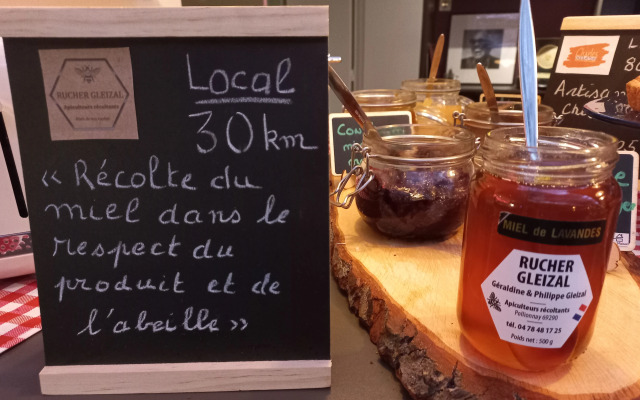 RUCHER GLEIZAL
Apiculteurs récoltants
Local
30 km
« Récolte du
miel dans le
respect du
produit et de
l'abeille »
MIEL de LAVANDES
RUCHER
GLEIZAL
Géraldine & Philippe Gleizal
Apiculteurs récoltants
Pollionnay 69290
tél. 04 78 48 17 25
Poids net : 500 g